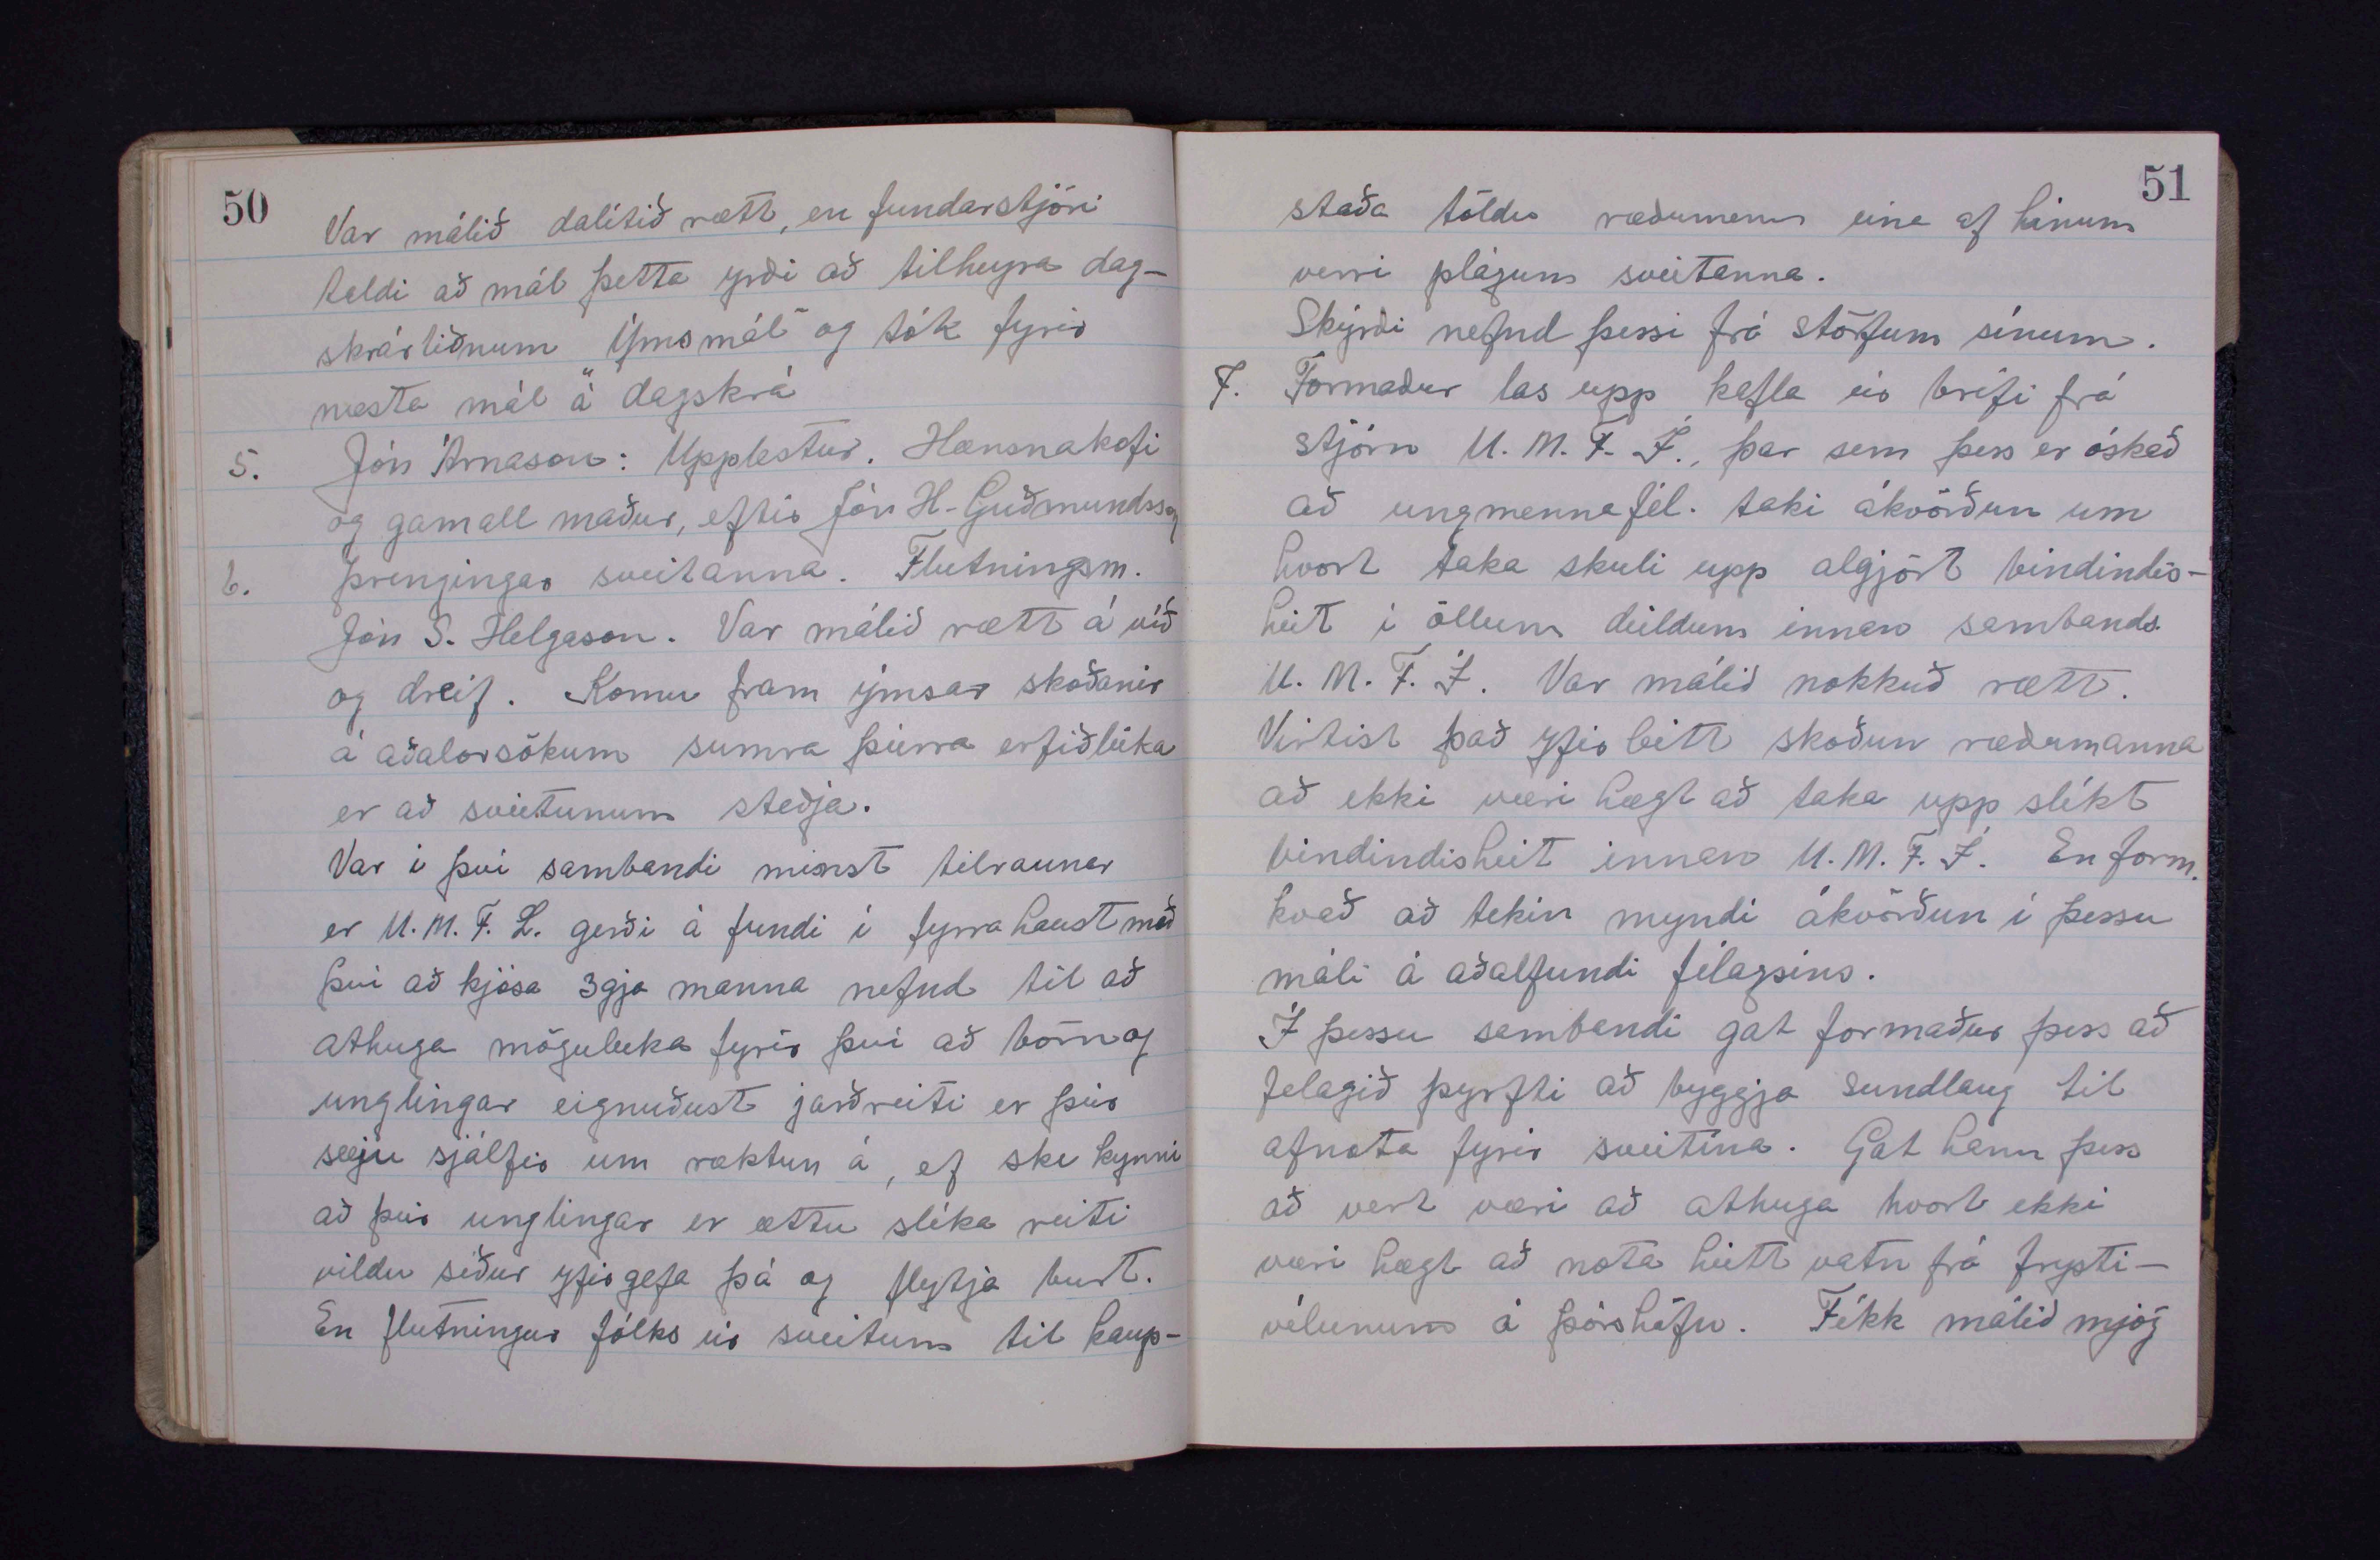 50
Var málið dalítið rætt, en fundarstjóri
taldi að mál þetta yrði að tilheyra dag-
skrárliðnum „Ýms mál“ og tók fyrir
næsta mál á dagskrá
5. Jón Árnason: Upplestur. Hænsnakofi
og gamall maður, eftir Jón H. Guðmundsson
6. Þrengingar sveitanna. Flutningsm.
Jón S. Helgason. Var málið rætt á víð
og dreif. Komu fram ýmsar skoðanir
á aðalorsökum sumra þeirra erfiðleika
er að sveitunum steðja.
Var í því sambandi minst tilraunar
er U.M.F.L. gerði á fundi í fyrra haust með
því að kjósa 3gja manna nefnd til að
athuga möguleika fyrir því að börn og
unglingar eignuðust jarðreiti er þeir
sæju sjálfir um ræktun á, ef ske kynni
að þeir unglingar er ættu slíka reiti
vildu síður yfirgefa þá og flytja burt.
En flutningur fólks úr sveitum til kaup-
51
staða töldu ræðumenn eina af hinum
verri plágum sveitanna.
Skýrði nefnd þessi frá störfum sínum.
7. Formaður las upp kafla úr bréfi frá
stjórn U.M.F.Í., þar sem þess er óskað
að ungmennafél. taki ákvörðun um
hvort taka skuli upp algjört bindindis-
heit í öllum deildum innan sambands.
U.M.F.Í. Var málið nokkuð rætt.
Virtist það yfirleitt skoðun ræðumanna
að ekki væri hægt að taka upp slíkt
bindindisheit innan U.M.F.Í. En form.
kvað að tekin myndi ákvörðun í þessu
máli á aðalfundi félagsins.
Í þessu sambandi gat formaður þess að
felagið þyrfti að byggja sundlaug til
afnota fyrir sveitina. Gat hann þess
að vert væri að athuga hvort ekki
væri hægt að nota heitt vatn frá frysti-
vélunum á Þórshöfn. Fékk málið mjög